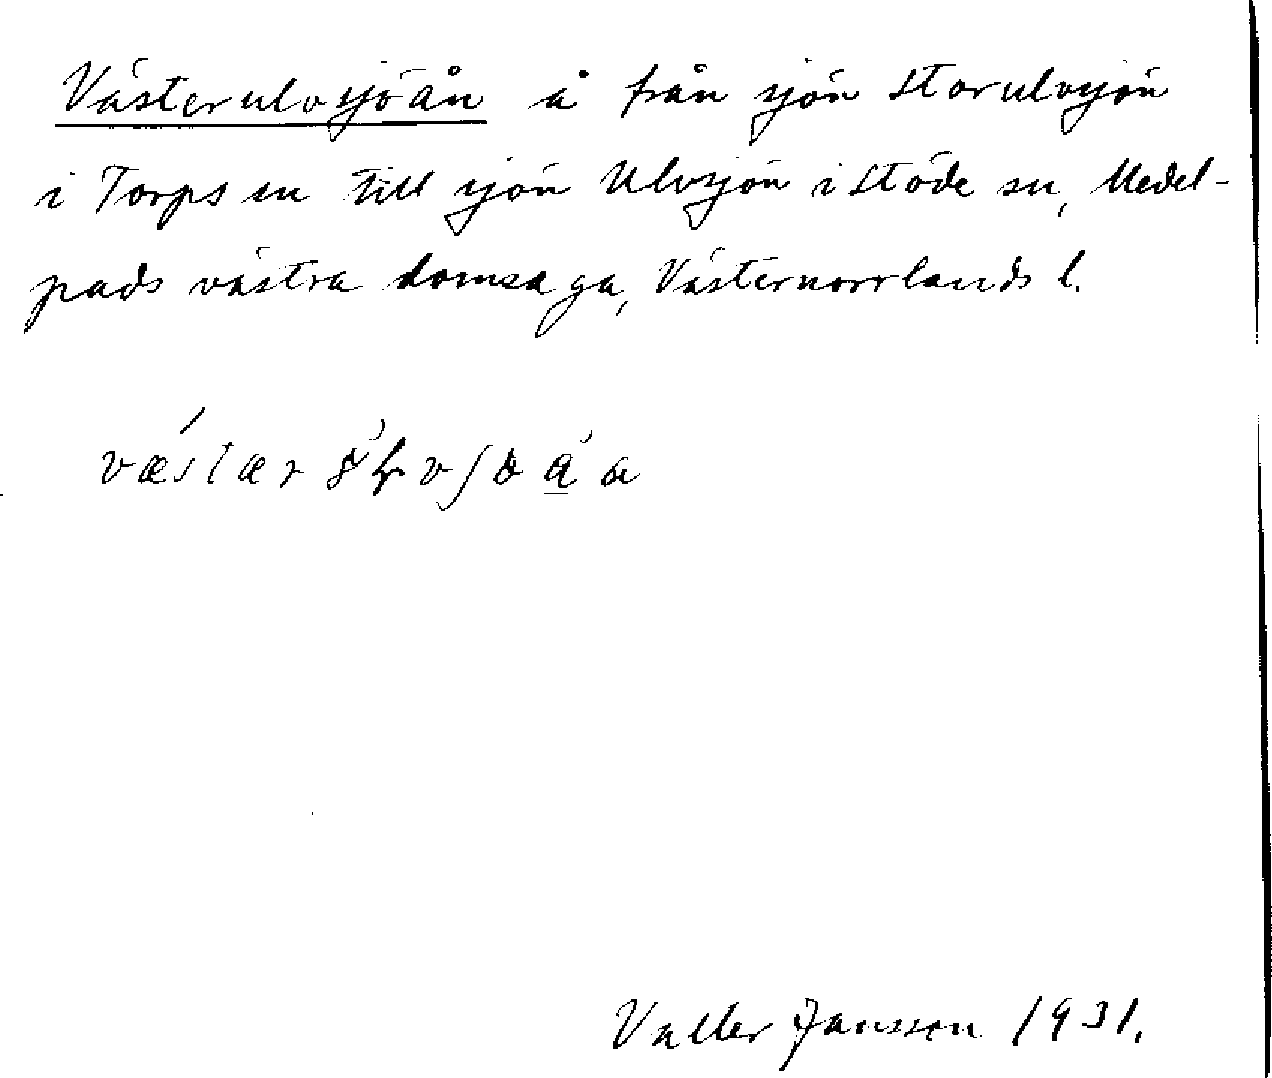 Västerulvsjöån å från sjön Storulvsjön
i Torps sn till sjön Ulvsjön i Stöde sn, Medel-
pads västra domsaga, Västernorrlands l.
Valter Jansson 1931.